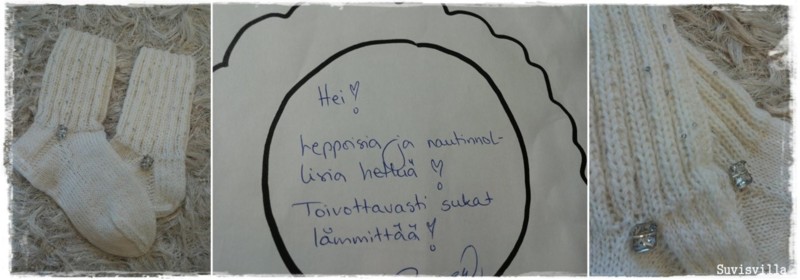 Hei!
Leppoisia ja nautinnol-
lisia hetkiä!
Toivottavasti sukat
lämmittää!
Suvisvilla